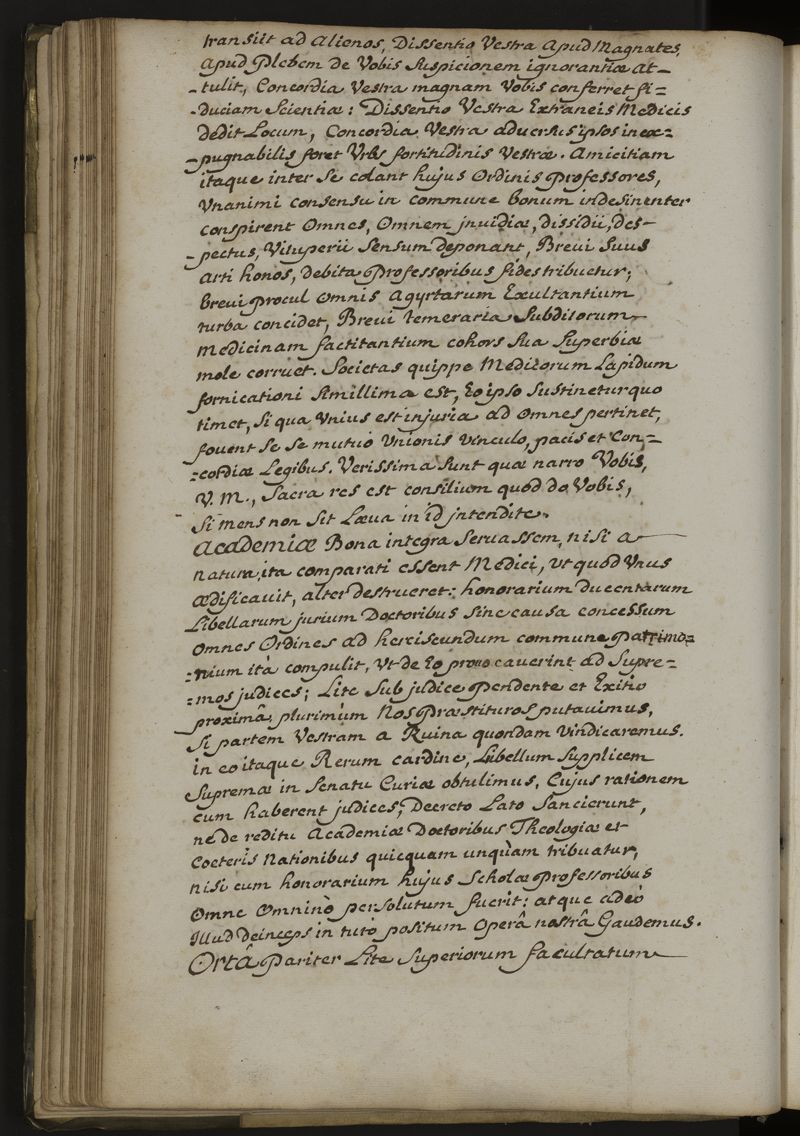 transiit ad Alienos, Dissentio Vestra Apud Magnates,
Apud Plebem de Vobis Suspicionem ignorantiæ at-
-tulit, Concordia Vestra magnam Vobis conferret fi=
-duciam Scientiæ: Dissentio Vestra Extraneis Medicis
Dedit Locum, Concordia Vestra adversus ipsos inex=
-pugnabilis foret Urbs fortitudinis Vestræ. Amicitiam
itaque inter se colant hujus Ordinis Professores,
Vnanimi consensu in commune bonum indesinenter
conspirent Omnes, Omnem jnvidiæ, dissidii, des-
-pectus, Vituperii Sensum deponant, Brevi Suus
Arti honos, debita Professoribus fides tribuetur;
brevi procul omnis Agyrtarum Exultantium
turba concidet, Brevi temeraria Subditorum
Medicinam factitantium cohors Sua Superbiæ
mole corruet. Societas quippe Medicorum Lapidum
fornicationi Simillima est, Eo ipso Sustinetur quo
timet, Si qua Vnius est injuria ad Omnes pertinet,
fouent Se Se mutuò Vnionis vinculo, pacis et Con=
=cordiæ Legibus. Verissima Sunt quæ narro Vobis,
V. M., Sacra res est consilium quod do Vobis,
Si mens non Sit Læva in id jntendite.
Academiæ Bona integra Servassem, nisi a
natura ita comparati essent Medici, Vt quod Vnus
ædificavit, alter destrueret: honorarium ducentarum
Libellarum jurium Doctoribus Sine causa concessum
Omnes Ordines ad herciscundum commune Patrimo=
=nium ità compulit, Vt de Eo provocaverint ad Supre=
=mos judices; Lite Sub judice pendente et Exitio
proximâ, plurimùm Nos Præstituros putavimus,
Si partem Vestram a Ruina quondam Vindicaremus.
in eo itaque Rerum cardine, Libellum Supplicem
Supremæ in Senatu Curiæ obtulimus, Cujus rationem
cum haberent judices, Decreto Lato Sancierunt,
ne de reditu Academiæ Doctoribus Theologiæ et
Coeteris Nationibus quicquam unquàm tribuatur,
nisi cum honorarium hujus Scholæ Professoribus
Omne Omninò persolutum fuerit: atque adeò
Illud Deinceps in tuto positum Operâ nostrâ Gaudemus.
Ortâ Pariter Lite Superiorum facultatum